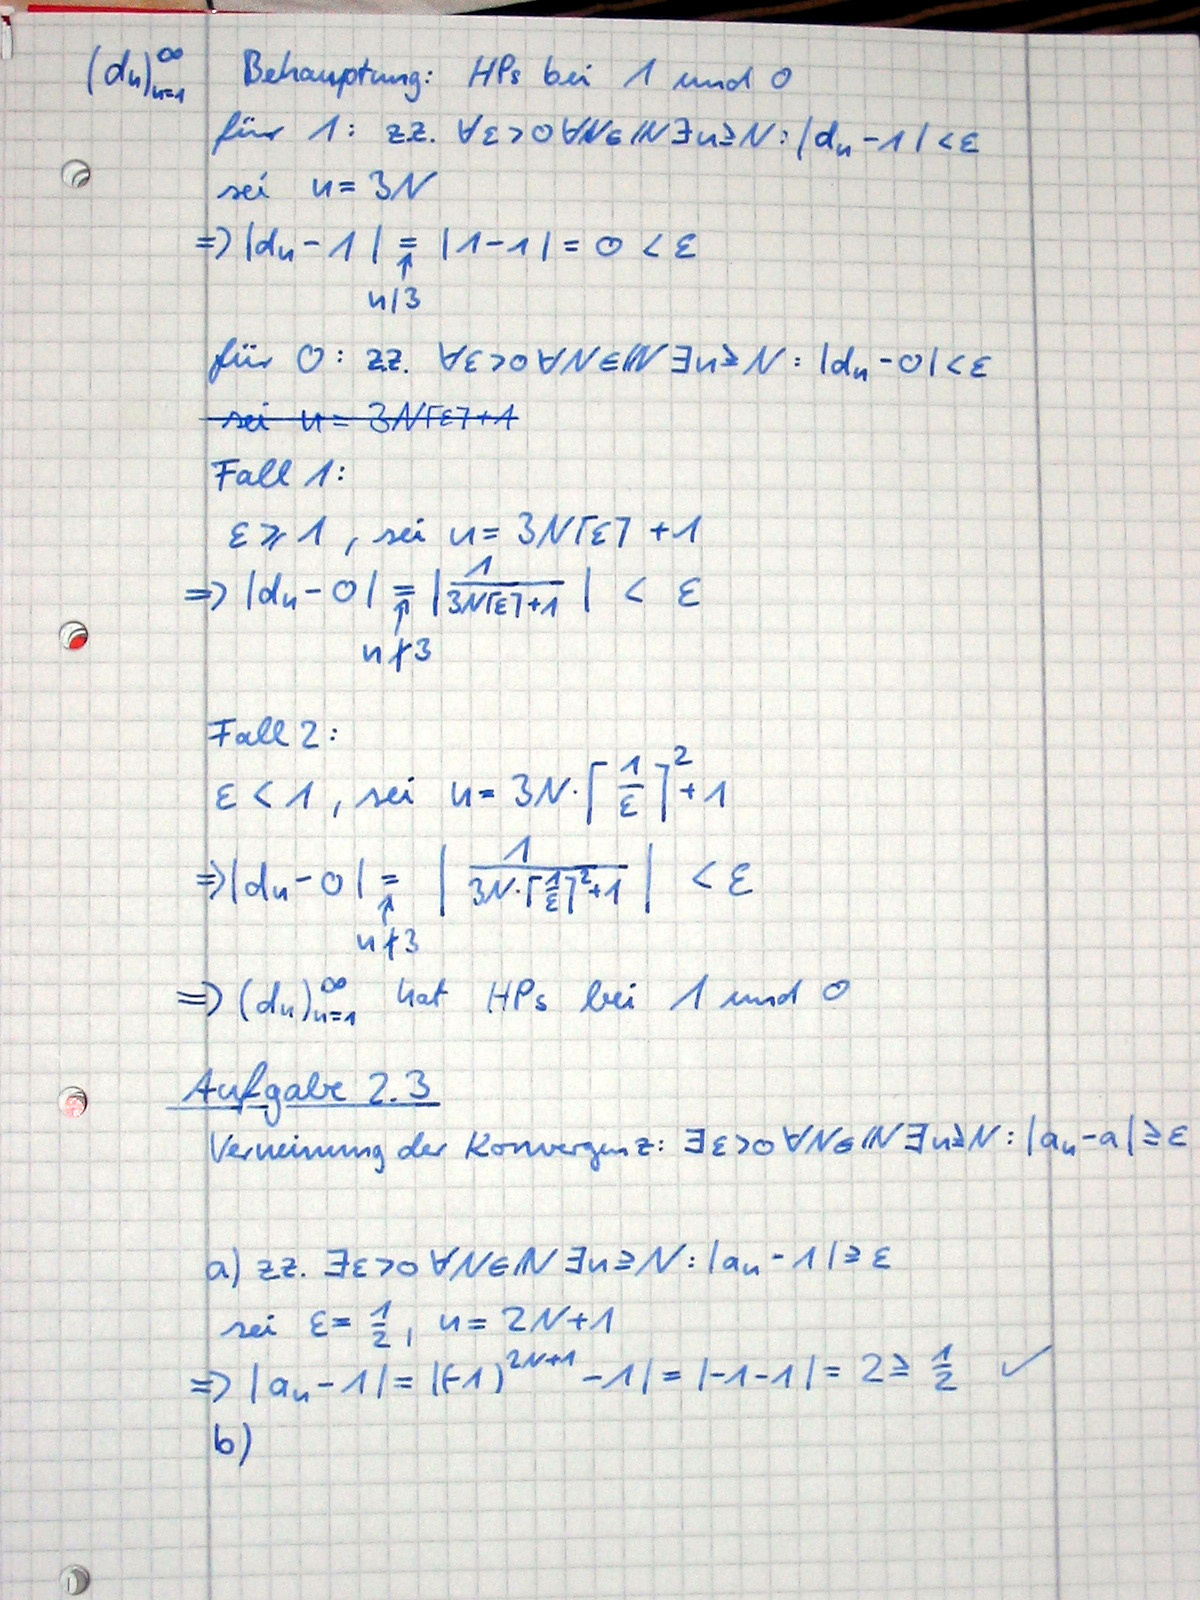 (dₙ)ₙ₌₁^∞ Behauptung: HPs bei 1 und 0
für 1: zz. ∀ε>0 ∀N∈ℕ ∃n≥N: |dₙ-1| <ε
sei n = 3N
⇒ |dₙ - 1| = |1-1| = 0 < ε
↑
n/3
für 0: zz. ∀ε>0 ∀N∈ℕ ∃n≥N: |dₙ-0|<ε
sei n = 3N⌈ε⌉+1
Fall 1:
ε ≥ 1, sei n = 3N⌈ε⌉ + 1
⇒ |dₙ - 0| = |1/(3N⌈ε⌉+1)| < ε
↑
n∤3
Fall 2:
ε < 1, sei n = 3N·⌈1/ε⌉² + 1
⇒ |dₙ - 0| = |1/(3N·⌈1/ε⌉²+1)| < ε
↑
n∤3
⇒ (dₙ)ₙ₌₁^∞ hat HPs bei 1 und 0
Aufgabe 2.3
Verneinung der Konvergenz: ∃ε>0 ∀N∈ℕ ∃n≥N: |aₙ-a| ≥ ε
a) zz. ∃ε>0 ∀N∈ℕ ∃n≥N: |aₙ-1| ≥ ε
sei ε = 1/2, n = 2N+1
⇒ |aₙ-1| = |(-1)^(2N+1) - 1| = |-1-1| = 2 ≥ 1/2 ✓
b)